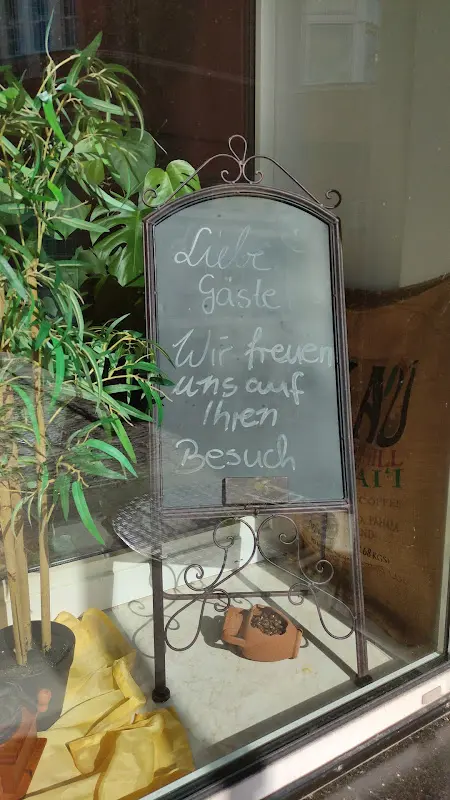 Liebe
Gäste
Wir freuen
uns auf
Ihren
Besuch